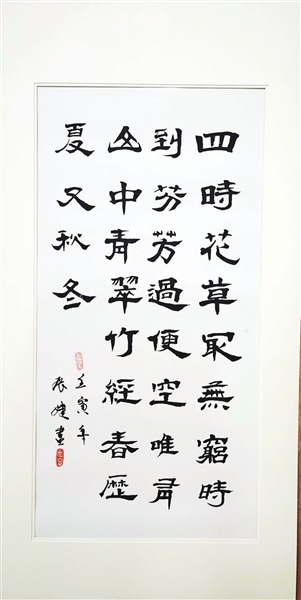 四時花草冣無窮時
到芬芳過便空唯有
山中青翠竹經春歷
夏又秋冬
壬寅年
書